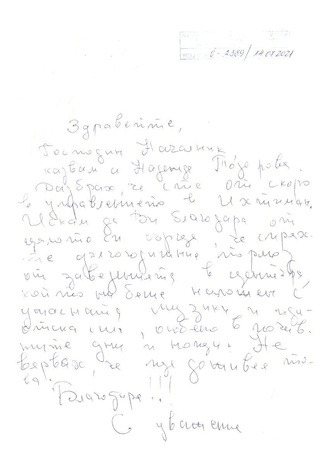 6-2389/14.07.2021
Здравейте,
Господин Началник
казвам се Надежда Тодорова.
Разбрах, че сте от скоро
в управлението в Ихтиман.
Искам да Ви благодаря от
цялото си сърце, че спрях-
те дългогодишния тормоз
от заведенията в центъра,
който ни беше наложен с
ужасната музика и иди-
отска сила, особено в почив-
ните дни и нощи. Не
вярвах, че ще доживея то-
ва!
Благодаря..!!!
С уважение